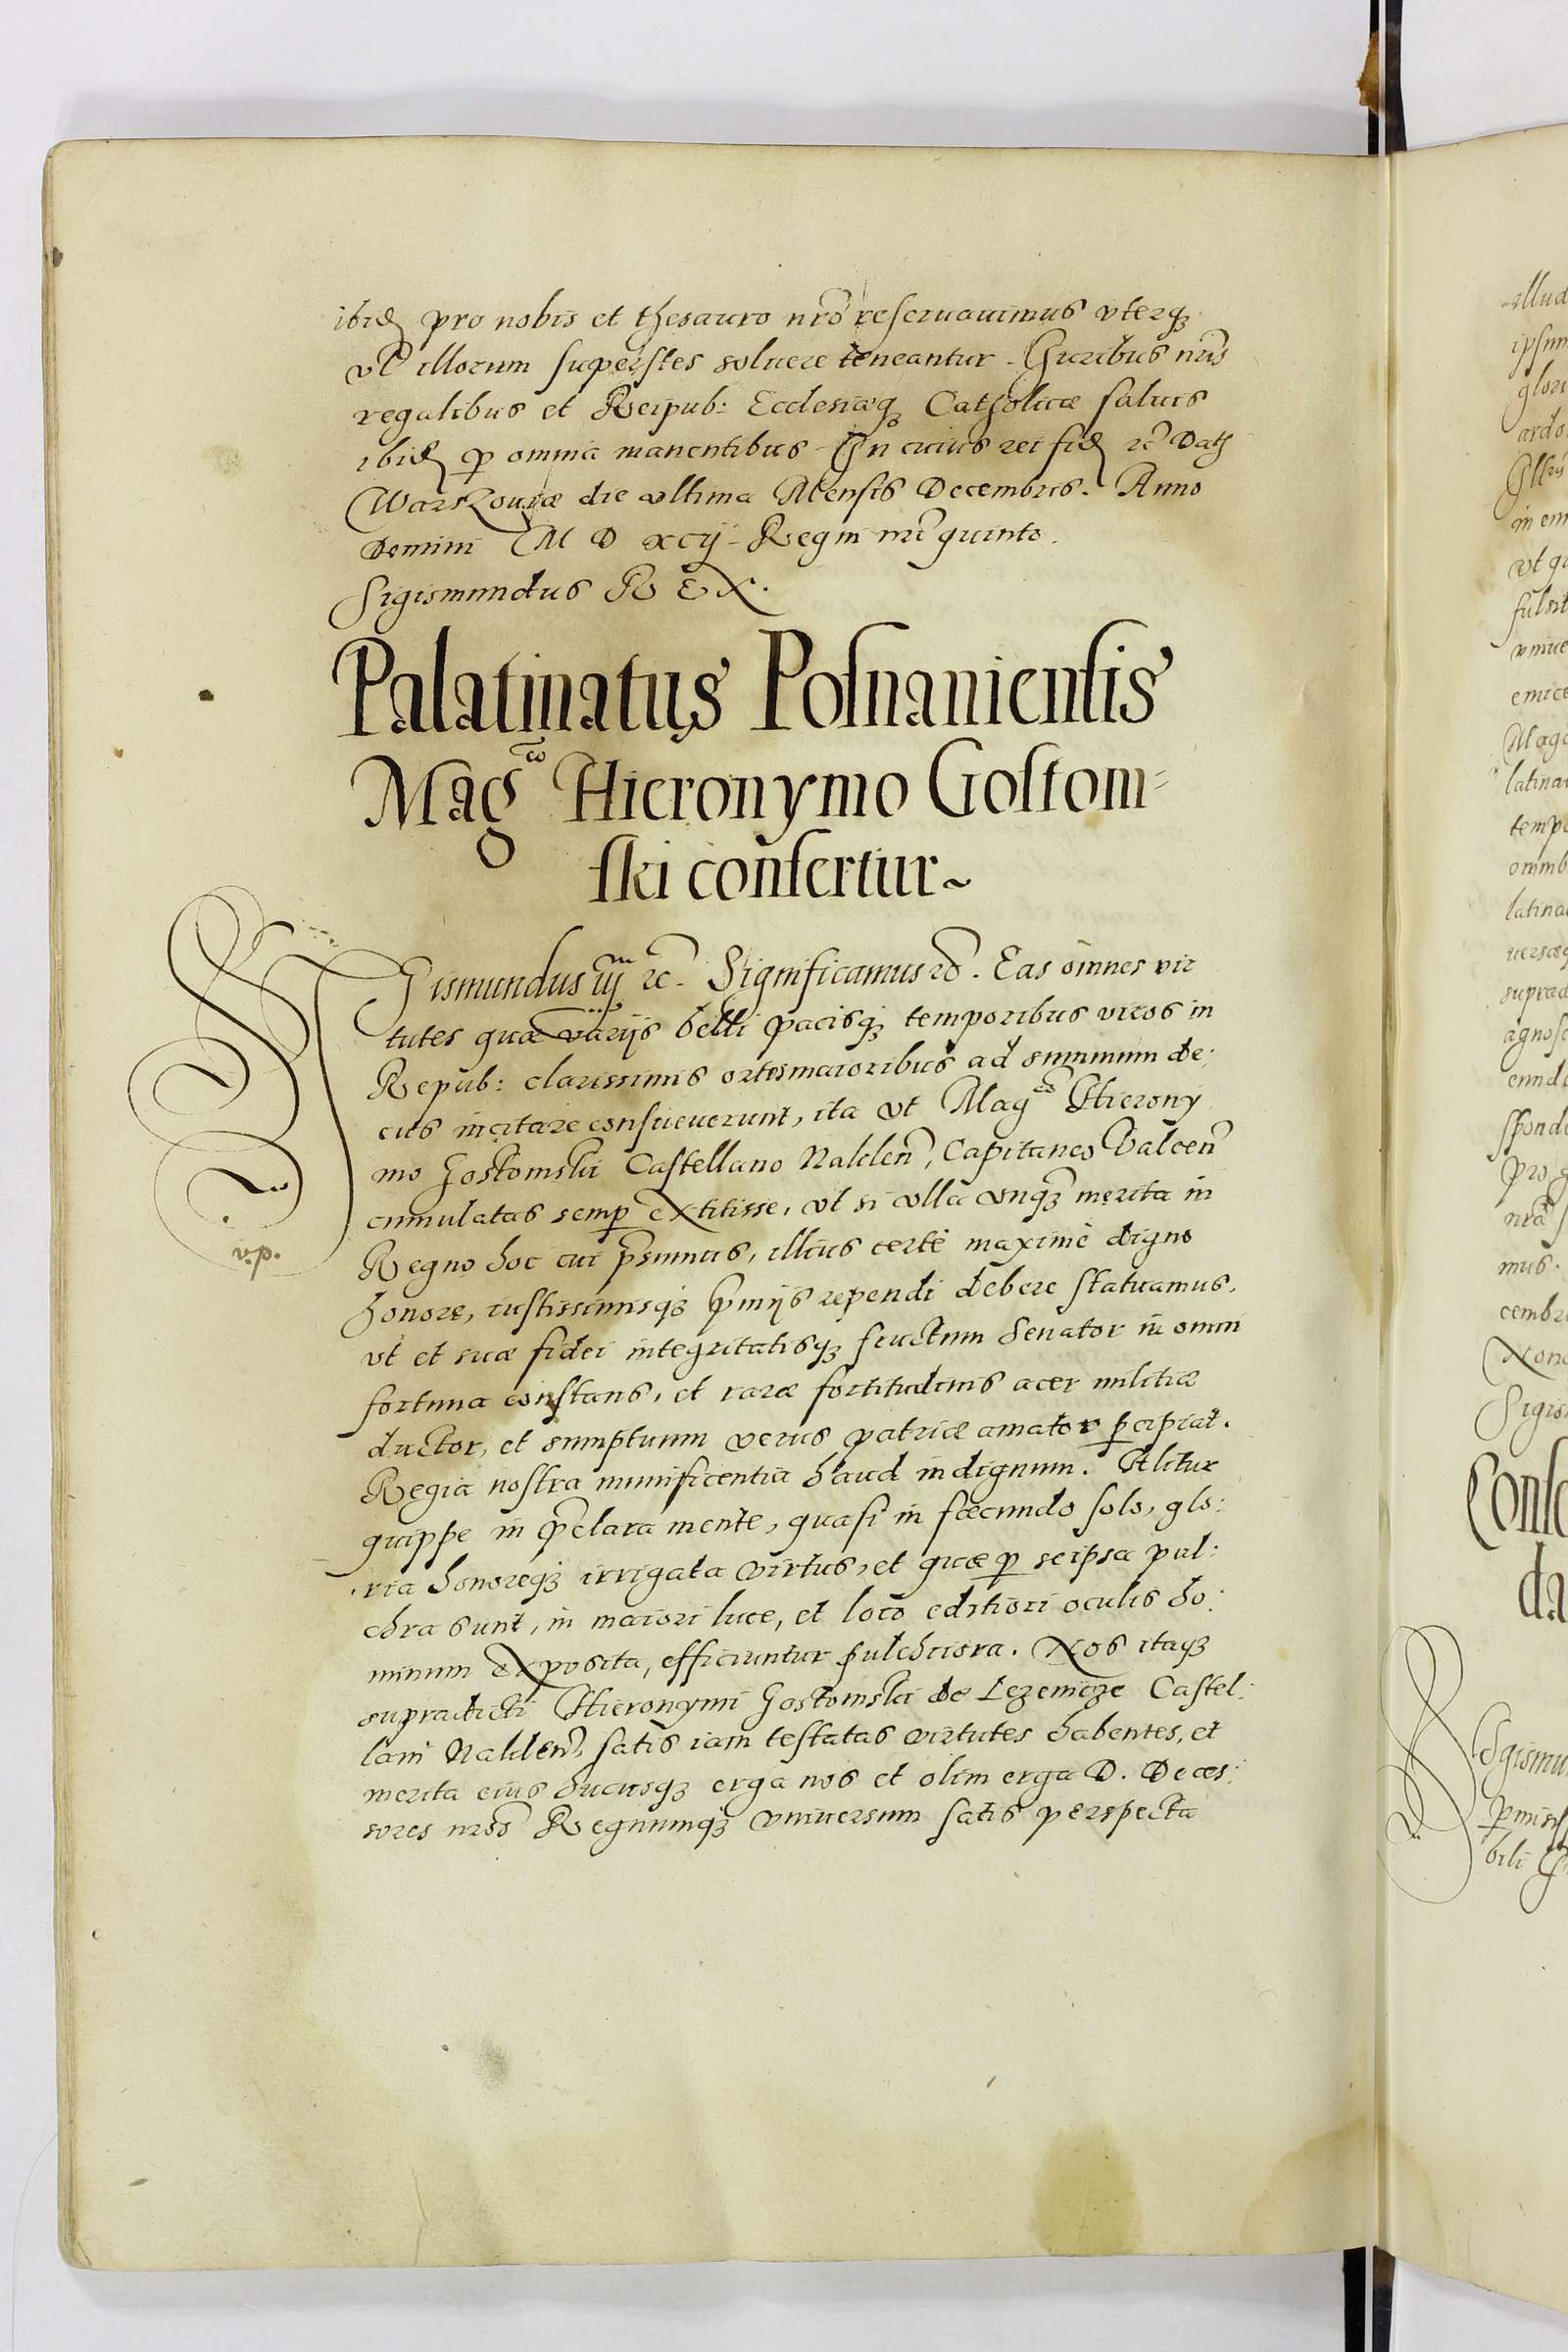 ibid pro nobis et thesauro nrõ reseruauimus vterq;
vl illorum superstes soluere teneantur. Iuribus nris
regalibus et Reipub: Ecclesiæq; Catholicæ saluis
ibid p omnia manentibus. In cuius rei fid rc Dat
Warszouiæ die vltima Mensis Decembris. Anno
Domini M D xcij. Regni nri quinto.
Sigismundus REX.
Palatinatus Posnaniensis
Mag^co Hieronymo Gostom=
ski confertur~
SIgismundus iij rc. Significamus rc. Eas omnes vir
tutes quæ varijs belli pacisq; temporibus viros in
Repub: clarissimis ortos maioribus ad summum de:
cus incitare consueuerunt, ita vt Mag^co Hierony
mo Gostomski Castellano Naklen, Capitaneo Valcen
cumulatas semp extitisse, vt si vlla vnq; merita in
Regno hoc cui psumus, illius certè maximè digno
honore, iustissimisq; pmijs rependi debere statuamus,
vt et suæ fidei integritatisq; fructum Senator in omni
fortuna constans, et raræ fortitudinis acer militiæ
ductor, et sumptuum verus patriæ amator pcipiat.
Regia nostra munificentia haud indignum. Alitur
quippe in pclara mente, quasi in fœcundo solo, glo:
ria honoreq; irrigata virtus, et quæ p seipsa pul:
chra sunt, in maiori luce, et loco editiori oculis ho:
minum exposita, efficiuntur pulchriora. Nos itaq;
supradicti Hieronymi Gostomski de Lezenicze Castel:
lani Naklen, satis iam testatas virtutes habentes, et
merita eius hucusq; erga nos et olim erga D. Deces:
sores nros Regnumq; vniuersum satis perspecta